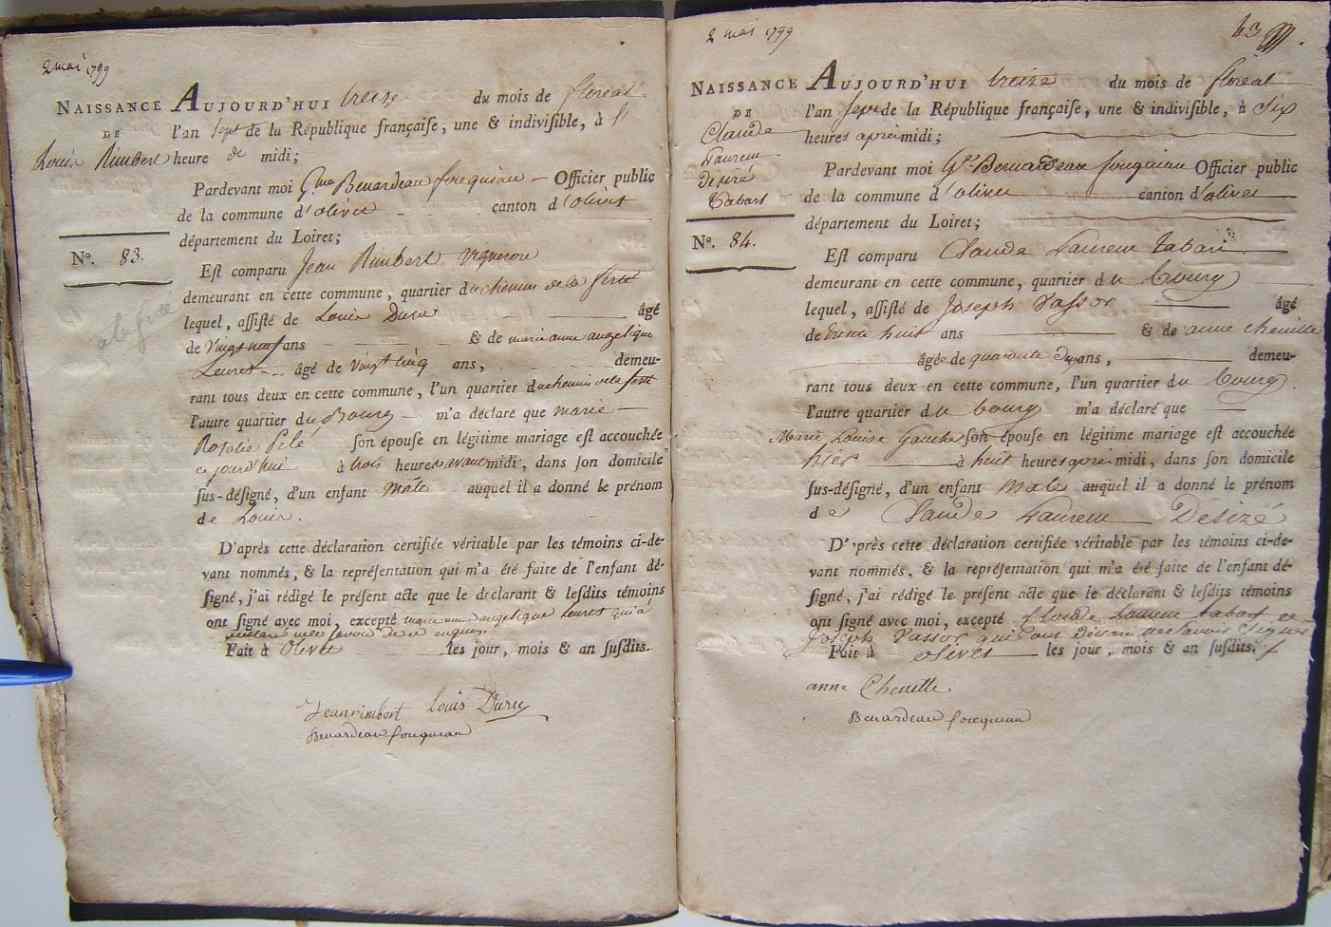 2 mai 1799
NAISSANCE
DE
Louis Rimbert
No. 83.
AUJOURD'HUI treize du mois de floreal
l'an sept de la République françaiſe, une & indiviſible, à
heure de midi;
Pardevant moi Benardeau fouquiau Officier public
de la commune d'olivet canton d'olivet
département du Loiret;
Eſt comparu Jean Rimbert vigneron
demeurant en cette commune, quartier du chemin de la ferté
lequel, aſſiſté de Louis Duru âgé
de vingt neuf ans & de marie anne angelique
Leuret âgé de vingt cinq ans, demeu-
rant tous deux en cette commune, l'un quartier du chemin de la ferté
l'autre quartier du Bourg m'a déclaré que marie
Rosalie Pelé ſon épouſe en légitime mariage eſt accouchée
ce jourd'hui à trois heures avant midi, dans ſon domicile
ſus-déſigné, d'un enfant mâle auquel il a donné le prénom
de Louis.
D'après cette déclaration certifiée véritable par les témoins ci-de-
vant nommés, & la repréſentation qui m'a été faite de l'enfant dé-
ſigné, j'ai rédigé le préſent acte que le déclarant & leſdits témoins
ont ſigné avec moi, excepté marie anne angelique Leuret qui a
Fait à Olivet les jour, mois & an ſuſdits.
Jean rimbert Louis Duru
Benardeau fouquiau
2 mai 1799
63
NAISSANCE
DE
Claude
Laurent
Desiré
Tabart
No. 84.
AUJOURD'HUI treize du mois de floreal
l'an sept de la République françaiſe, une & indiviſible, à six
heures après midi;
Pardevant moi Benardeau fouquiau Officier public
de la commune d'olivet canton d'olivet
département du Loiret;
Eſt comparu Claude Laurent tabart
demeurant en cette commune, quartier du bourg
lequel, aſſiſté de Joseph Vassor âgé
de trente huit ans & de anne chenille
âgée de quarante ans, demeu-
rant tous deux en cette commune, l'un quartier du bourg
l'autre quartier du bourg m'a déclaré que
Marie Louise ſon épouſe en légitime mariage eſt accouchée
hier à huit heures après midi, dans ſon domicile
ſus-déſigné, d'un enfant mâle auquel il a donné le prénom
de Claude Laurent Desiré
D'après cette déclaration certifiée véritable par les témoins ci-de-
vant nommés, & la repréſentation qui m'a été faite de l'enfant dé-
ſigné, j'ai rédigé le préſent acte que le déclarant & leſdits témoins
ont ſigné avec moi, excepté Claude Laurent tabart et
Joseph Vassor qui ont declaré ne savoir signer
Fait à olivet les jour, mois & an ſuſdits.
anne
Benardeau fouquiau